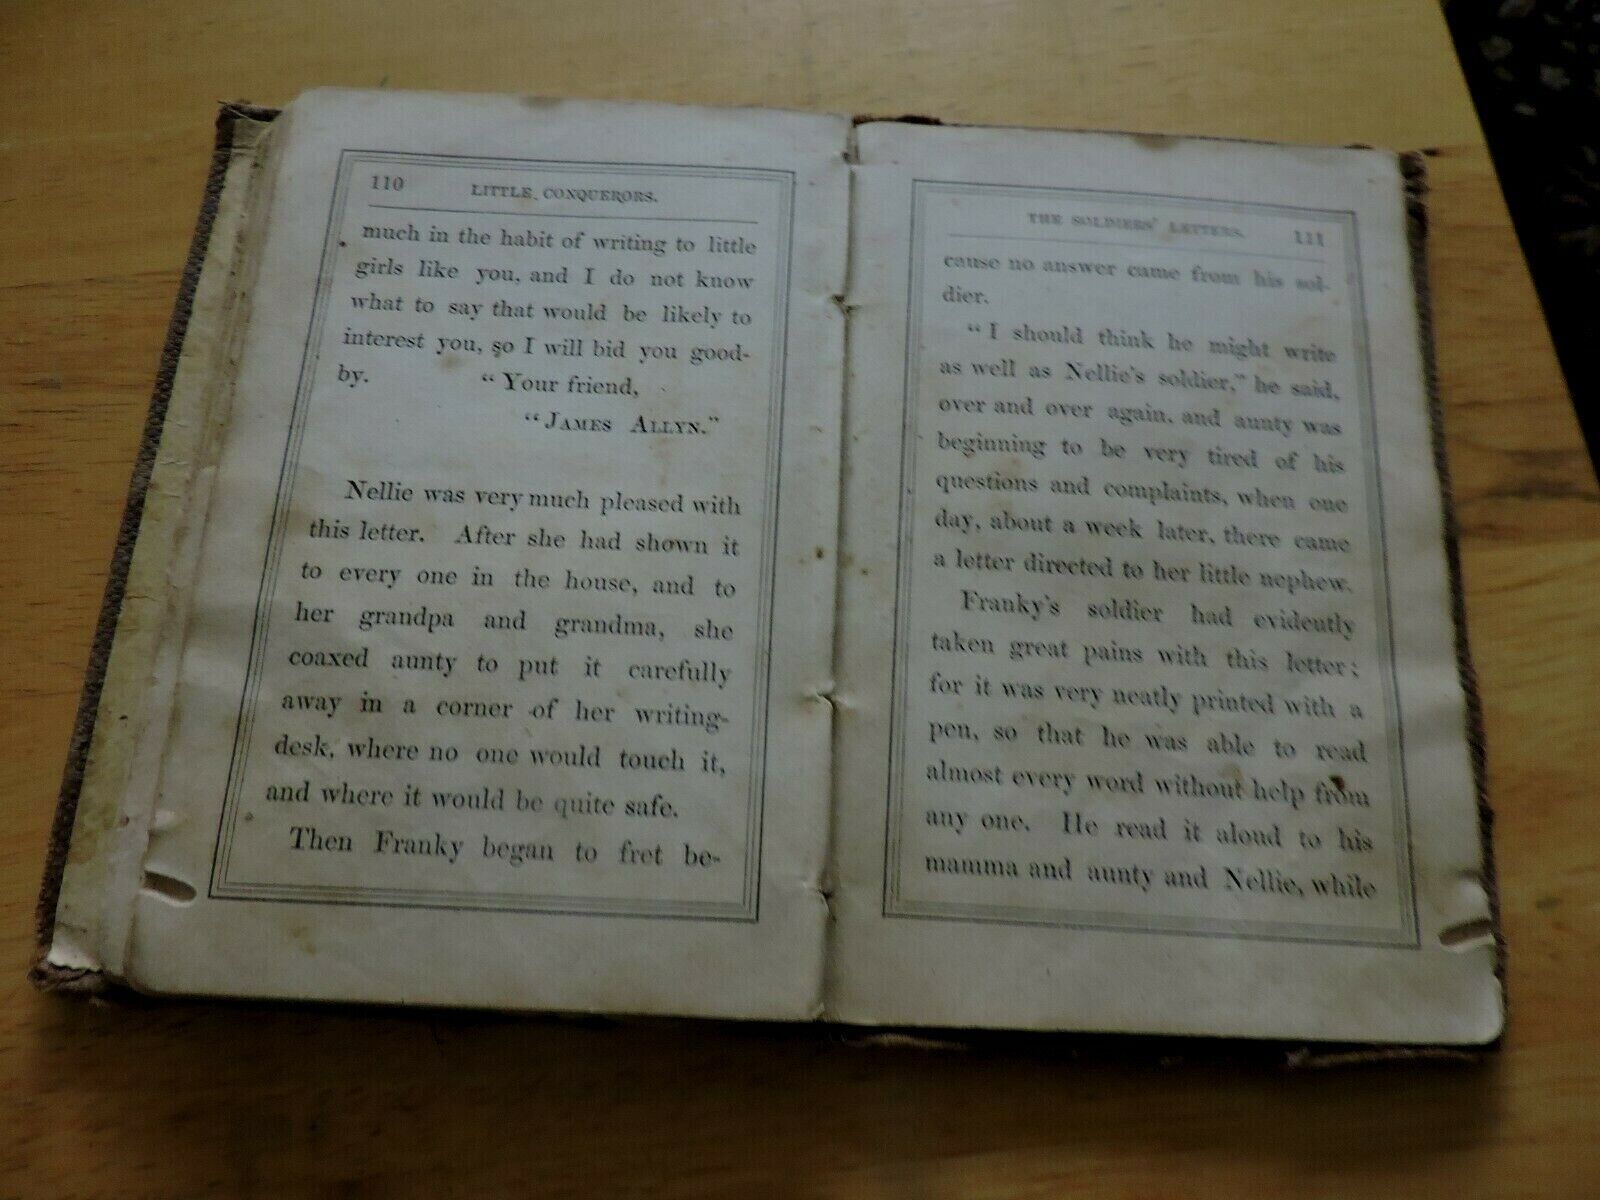 110 LITTLE CONQUERORS.
much in the habit of writing to little
girls like you, and I do not know
what to say that would be likely to
interest you, so I will bid you good-
by. “Your friend,
“JAMES ALLYN.”
Nellie was very much pleased with
this letter. After she had shown it
to every one in the house, and to
her grandpa and grandma, she
coaxed aunty to put it carefully
away in a corner of her writing-
desk, where no one would touch it,
and where it would be quite safe.
Then Franky began to fret be-
THE SOLDIERS' LETTERS. 111
cause no answer came from his sol-
dier.
“I should think he might write
as well as Nellie's soldier,” he said,
over and over again, and aunty was
beginning to be very tired of his
questions and complaints, when one
day, about a week later, there came
a letter directed to her little nephew.
Franky's soldier had evidently
taken great pains with this letter;
for it was very neatly printed with a
pen, so that he was able to read
almost every word without help from
any one. He read it aloud to his
mamma and aunty and Nellie, while